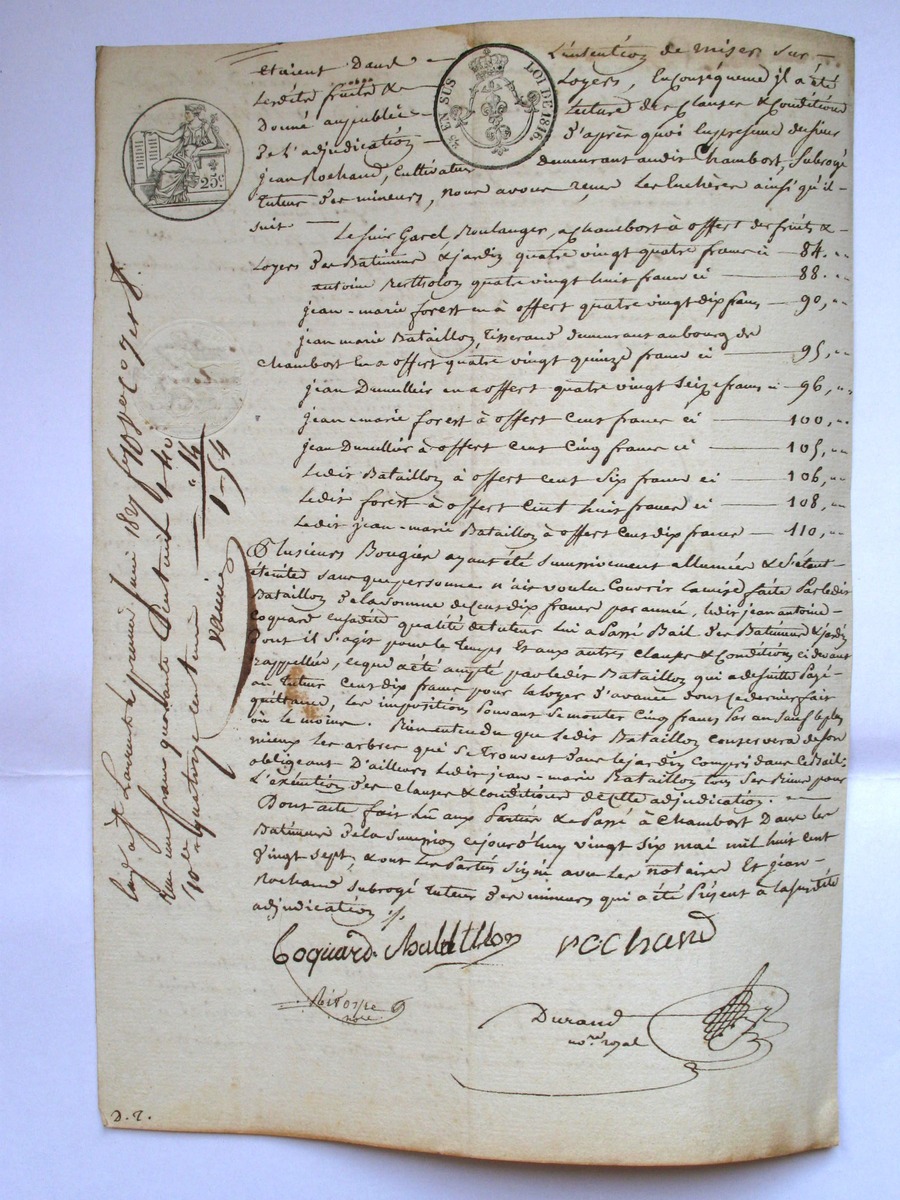 étaient dans l'intention de miser sur
lesdits fruits & loyers, en conséquence il a été
donné au public lecture des clauses & conditions
de l'adjudication d'après quoi en présence du sieur
jean Rochand, Cultivateur demeurant audit Chambost, subrogé
tuteur des mineurs, nous avons reçu les enchères ainsi qu'il
suit
Le sieur Garel Boulanger, a Chambost à offert des fruits &
Loyers des Batimens & jardin quatre vingt quatre francs ci 84. "
antoine Bertholon quatre vingt huit francs ci 88. "
jean-marie forest en à offert quatre vingt dix francs 90, "
jean marie Bataillon, tisserand demeurant au bourg de
Chambost en a offert quatre vingt quinze francs ci 95, "
jean Dumullier en a offert quatre vingt seize francs ci 96, "
jean-marie forest à offert cent francs ci 100, "
jean Dumullier à offert cent cinq francs ci 105, "
Ledit Bataillon à offert cent six francs ci 106, "
Ledit forest à offert cent huit francs ci 108, "
Ledit jean-marie Bataillon à offert cent dix francs 110, "
Plusieurs Bougies ayant été successivement allumées & s'étant
éteintes sans que personne n'ait voulu couvrir la mise faite par ledit
Bataillon de la somme de cent dix francs par année, ledit jean antoine
Coquard en sadite qualité de tuteur lui a passé Bail des Batimens & jardin
dont il s'agit pour le temps et aux autres clauses & conditions ci devant
rappellées, ce qui a été accepté par ledit Bataillon qui a desuitte payé
au tuteur cent dix francs pour le loyer d'avance dont ce dernier fait
quittance, les impositions pouvant se monter cinq francs par an sauf le plus
ou le moins. Bien entendu que ledit Bataillon conservera de son
mieux les arbres qui se trouvent dans le jardin compris dans ce Bail,
obligeant d'ailleurs ledit jean-marie Bataillon tous ses Biens pour
L'exécution des clauses & conditions de cette adjudication.
Dont acte fait lu aux Parties & Passé à Chambost Dans les
Batimens de la succession cejourd'huy vingt six mai mil huit cent
vingt sept, & ont les Parties signé avec les notaires Et jean
Rochand subrogé tuteur des mineurs qui a été présent à la susdite
adjudication ./.
Coquard Bataillon rochand
nre
Durand
nore royal
D. T.
EN SUS
LOI DE 1816.
25c
premier juin 1827
un franc quarante centimes 1 40
10e quatorze centimes " 14
1-54